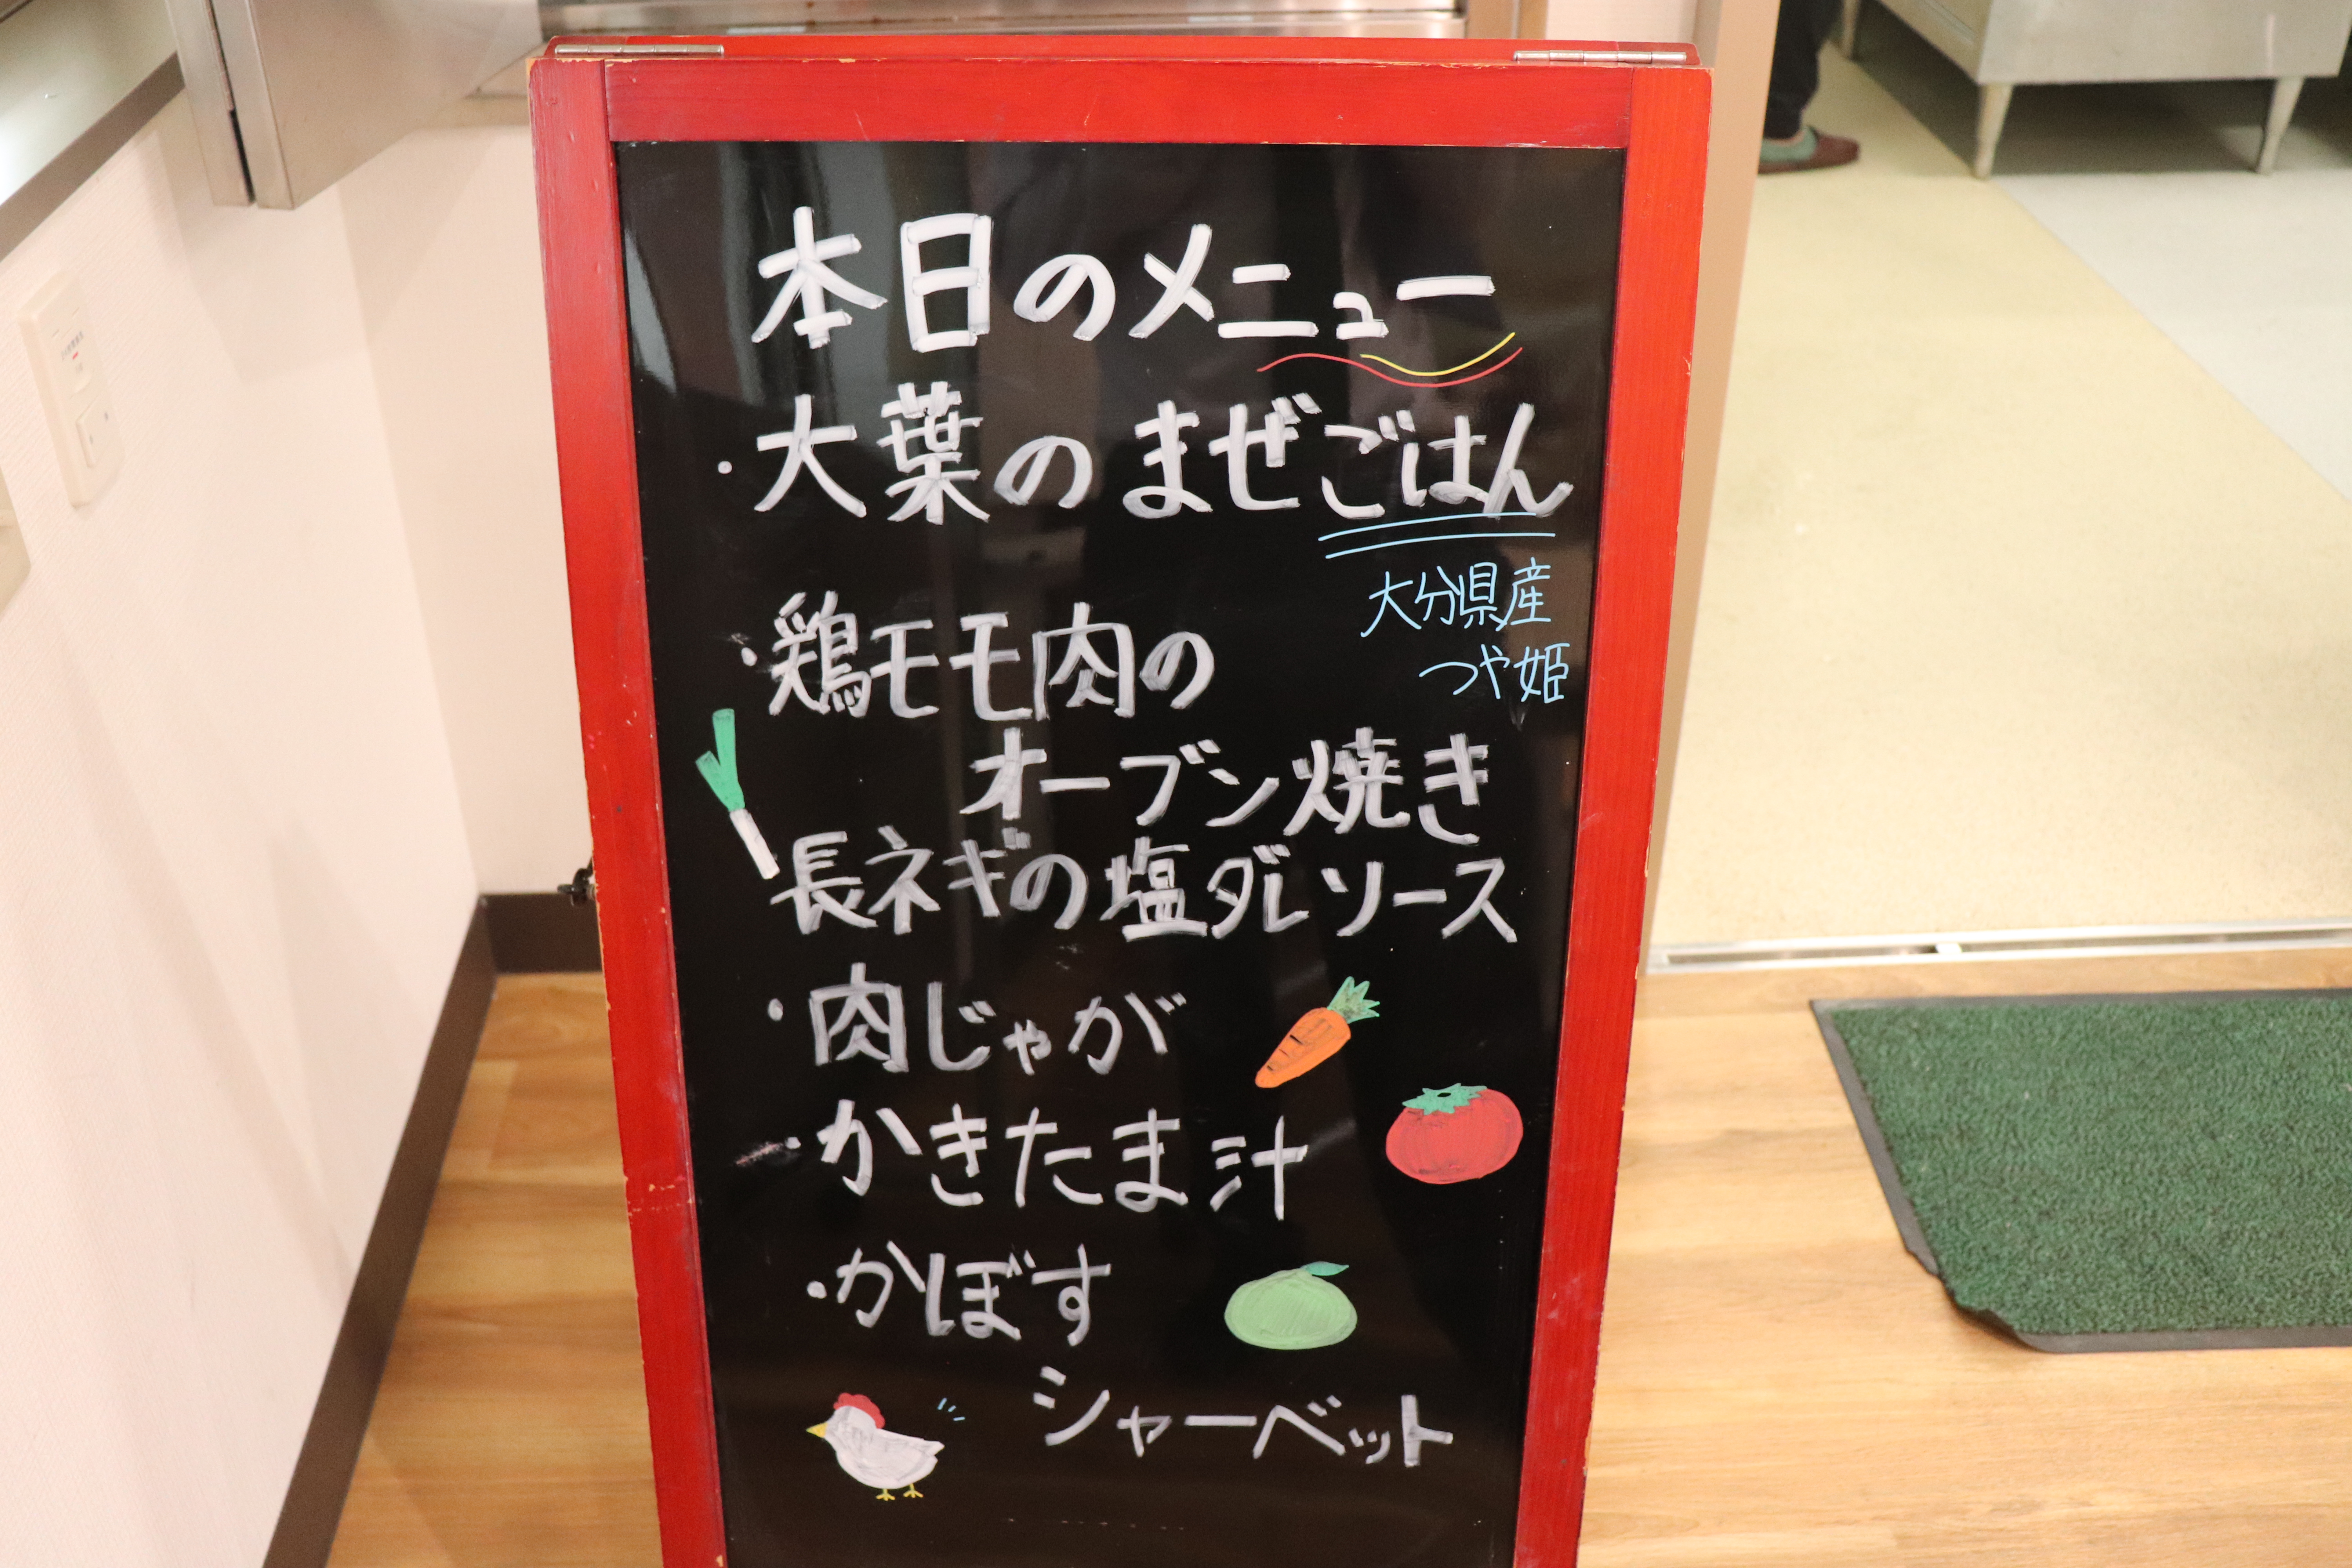 本日のメニュー
・大葉のまぜごはん
大分県産
つや姫
・鶏モモ肉の
オーブン焼き
長ネギの塩ダレソース
・肉じゃが
・かきたま汁
・かぼす
シャーベット